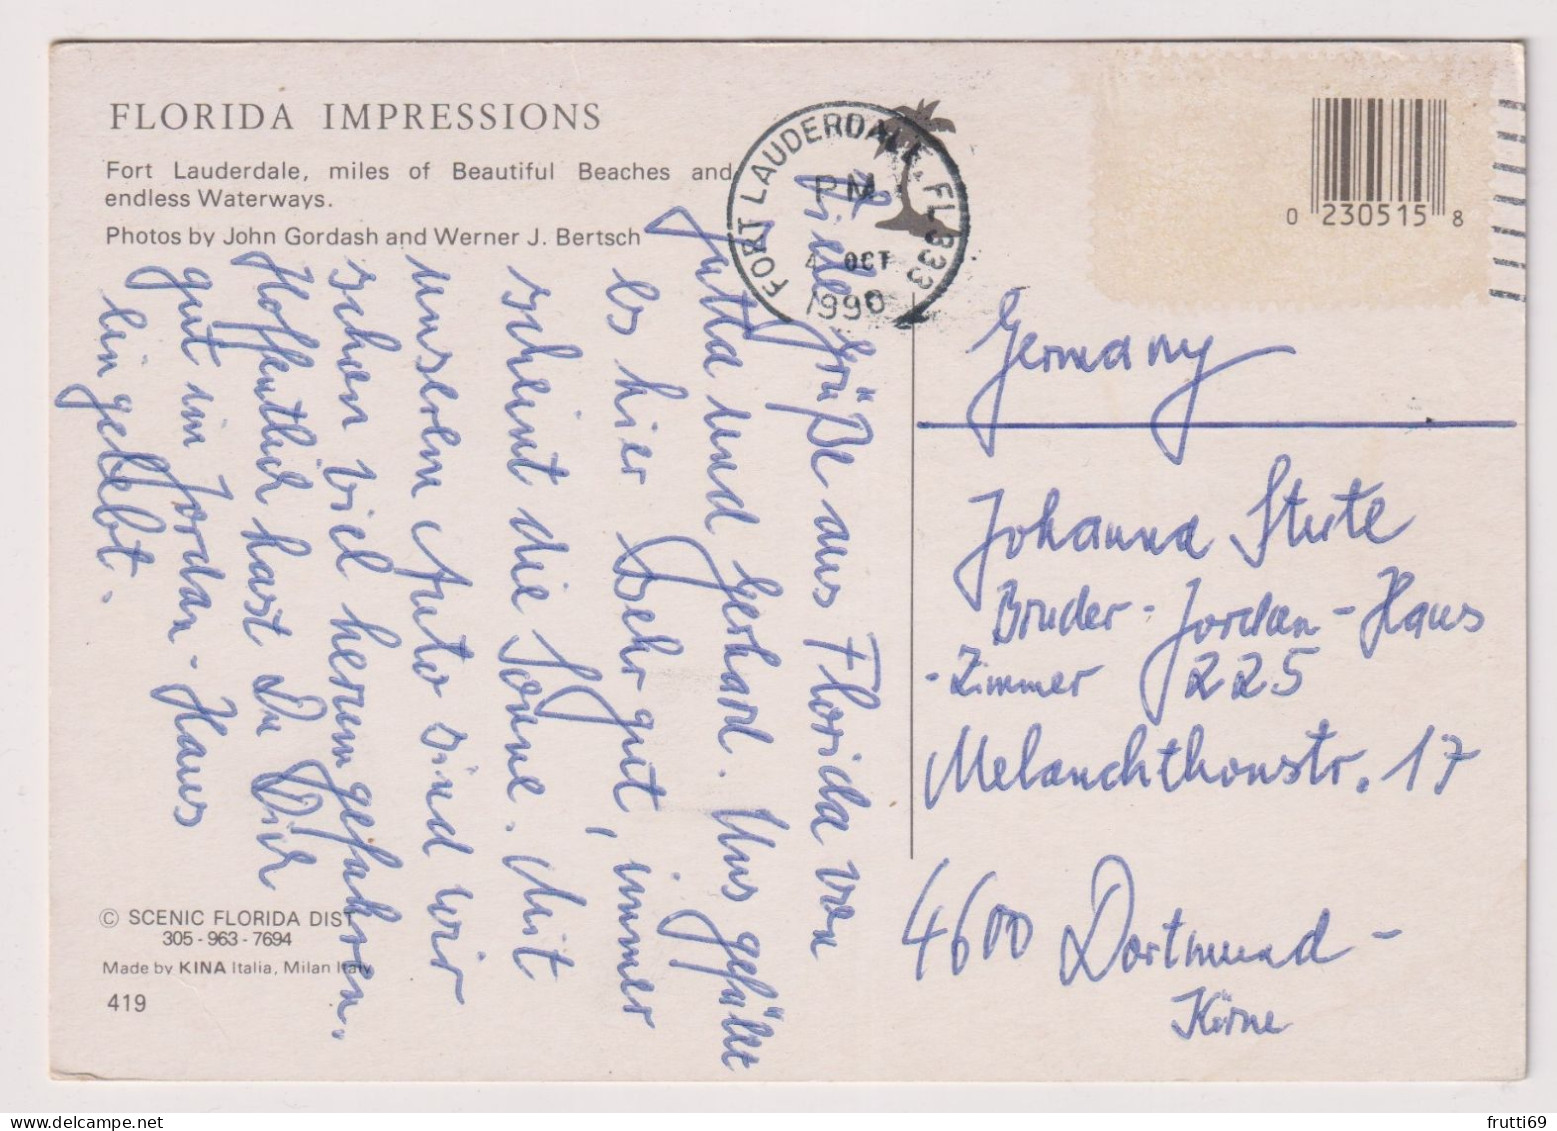 FLORIDA IMPRESSIONS
Fort Lauderdale, miles of Beautiful Beaches and
endless Waterways.
Photos by John Gordash and Werner J. Bertsch
Viele Grüße aus Florida von
Jutta und Gerhard. Uns gefällt
es hier sehr gut, immer
scheint die Sonne. Mit
unserem Auto sind wir
schon viel herumgefahren.
Hoffentlich hast Du Dich
gut im Jordan-Haus
eingelebt.
© SCENIC FLORIDA DIST
305-963-7694
Made by KINA Italia, Milan Italy
419
FORT LAUDERDALE, FL 333
PM
4 OCT
1990
0 230515 8
Germany
Johanna Stute
Bruder-Jordan-Haus
-Zimmer 225
Melanchthonstr. 17
4600 Dortmund-
Körne
frutti69